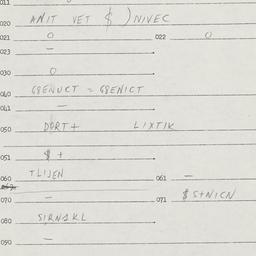 011
020 ANIT VET $ ) NIVEC
021 O 022 O
023 —
030 O
040 GBENUCT = GBENICT
041 —
050 DORT+ LIXTIK
051 $ +
060 TLIJEN 061 —
070 — 071 $ S+NICN
080 SIRNAKL
090 —